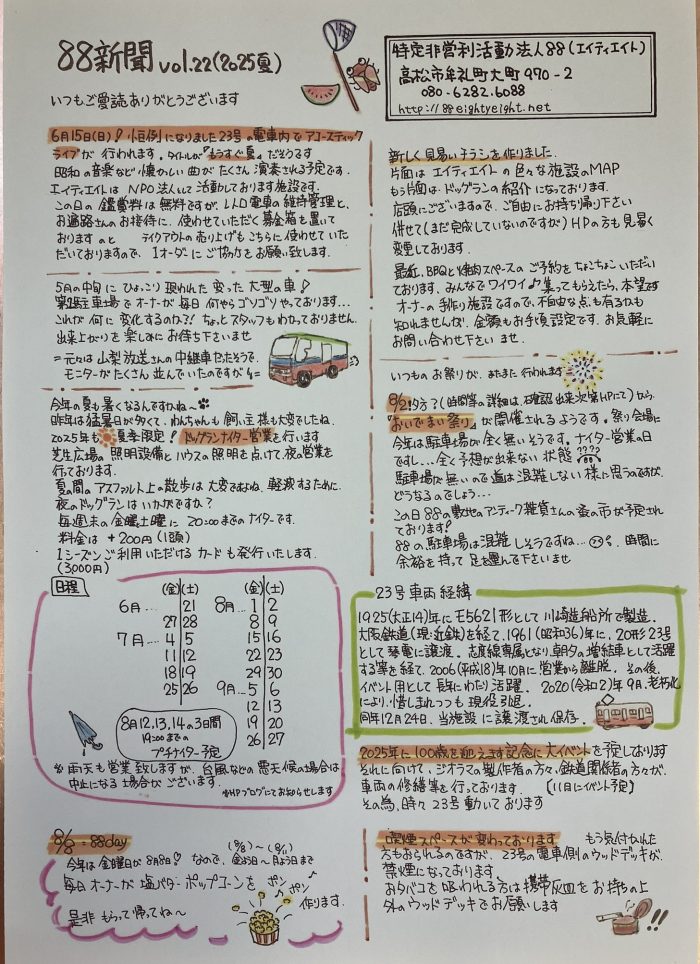 88新聞 vol.22(2025夏)
いつもご愛読ありがとうございます
特定非営利活動法人88(エイティエイト)
高松市牟礼町大町970-2
080-6282.6088
http://88eightyeight.net
6月15日(日)! 恒例になりました23号の電車内でアコースティック
ライブが 行われます。タイトルが『もうすぐ夏』だそうです
昭和の音楽など懐かしい曲がたくさん演奏される予定です.
エイティエイトは、NPO法人として活動しております施設です.
この日の鑑賞料は無料ですが、レトロ電車の維持管理と、
お遍路さんのお接待に、使わせていただく募金箱を置いて
おりますのと テイクアウトの売り上げもこちらに使わせていた
だいておりますので、1オーダーにご協力をお願い致します.
5月の中旬にひょっこり現われた変った大型の車!
第1駐車場でオーナーが毎日何やらゴソゴソやっております…
これが何に変化するのか?! ちょっとスタッフもわかっておりません.
出来上がりを楽しみにお待ち下さいませ
=元々は山梨放送さんの中継車だったそうで、
モニターがたくさん並んでいたのですが=
今年の夏も暑くなるんですかね~
昨年は猛暑日が多くて、わんちゃんも飼い主様も大変でしたね.
2025年も夏季限定! ドッグランナイター営業を行います
芝生広場の照明設備とハウスの照明を点けて、夜の営業を
行っております.
夏の間のアスファルト上の散歩は大変ですよね、軽減するために.
夜のドッグランはいかがですか?
毎週末の金曜土曜に 20:00までのナイターです.
料金は +200円(1頭)
1シーズンご利用いただけるカードも発行いたします.
(3000円)
日程
(金)(土) (金)(土)
6月… 21 8月… 1 2
27 28 8 9
7月… 4 5 15 16
11 12 22 23
18 19 29 30
25 26 9月… 5 6
12 13
19 20
26 27
8月12,13,14の3日間
19:00までの
プチナイター予定
※雨天も営業致しますが、台風などの悪天候の場合は
中止になる場合がございます.
*HPブログにてお知らせします
8/8=88day
(8/8)~(8/11)
今年は金曜日が8月8日! なので、金よう日~月よう日まで
毎日オーナーが塩バターポップコーンを
ポン ポン
作ります.
是非 もらって帰ってね~
新しく見易いチラシを作りました.
片面はエイティエイトの色々な施設のMAP
もう片面は、ドッグランの紹介になっております.
店頭にございますので、ご自由にお持ち帰り下さい
併せて(まだ完成していないのですが)HPの方も見易く
変更しております.
最近、BBQと焼肉スペースのご予約をちょこちょこいただい
ております、みんなでワイワイ♪集ってもらえたら、本望です
オーナーの手作り施設ですので、不自由な点も有るかも
知れませんが、金額もお手頃設定です、お気軽に
お問い合わせ下さいませ.
いつものお祭りが、またまた行われます
8/2夕方?(時間等の詳細は、確認出来次第HPにて)から.
『おいでまい祭り』が開催されるようです. 祭り会場に
今年は駐車場が全く無いそうです. ナイター営業の日
ですし…全く予想が出来ない状態????
駐車場が無いので逆に混雑しない様に思うのですが、
どうなるのでしょう…
この日88の敷地のアンティーク雑貨さんの蚤の市が予定され
ております!
88の駐車場は混雑しそうですね…. 時間に
余裕を持って足を運んで下さいませ
23号車両経緯
1925(大正14)年にモ5621形として川崎造船所で製造.
大阪鉄道(現:近鉄)を経て、1961(昭和36)年に、20形23号
として琴電に譲渡. 志度線専属となり、朝夕の増結車として活躍
する等を経て、2006(平成18)年10月に営業から離脱. その後、
イベント用として長年にわたり活躍. 2020(令和2)年9月、老朽化
により、惜しまれつつも現役引退.
同年12月24日、当施設に譲渡され保存.
2025年に100歳を迎えます記念に大イベントを予定しております
それに向けて、ジオラマの製作者の方々、鉄道関係者の方々が、
車両の修繕等を行っております. (11月にイベント予定)
その為、時々23号動いております
喫煙スペースが変わっております もう気付かれた
方もおられるのですが、23号の電車側のウッドデッキが、
禁煙になっております.
おタバコを吸われる方は携帯灰皿をお持ちの上
外のウッドデッキでお願いします
!!